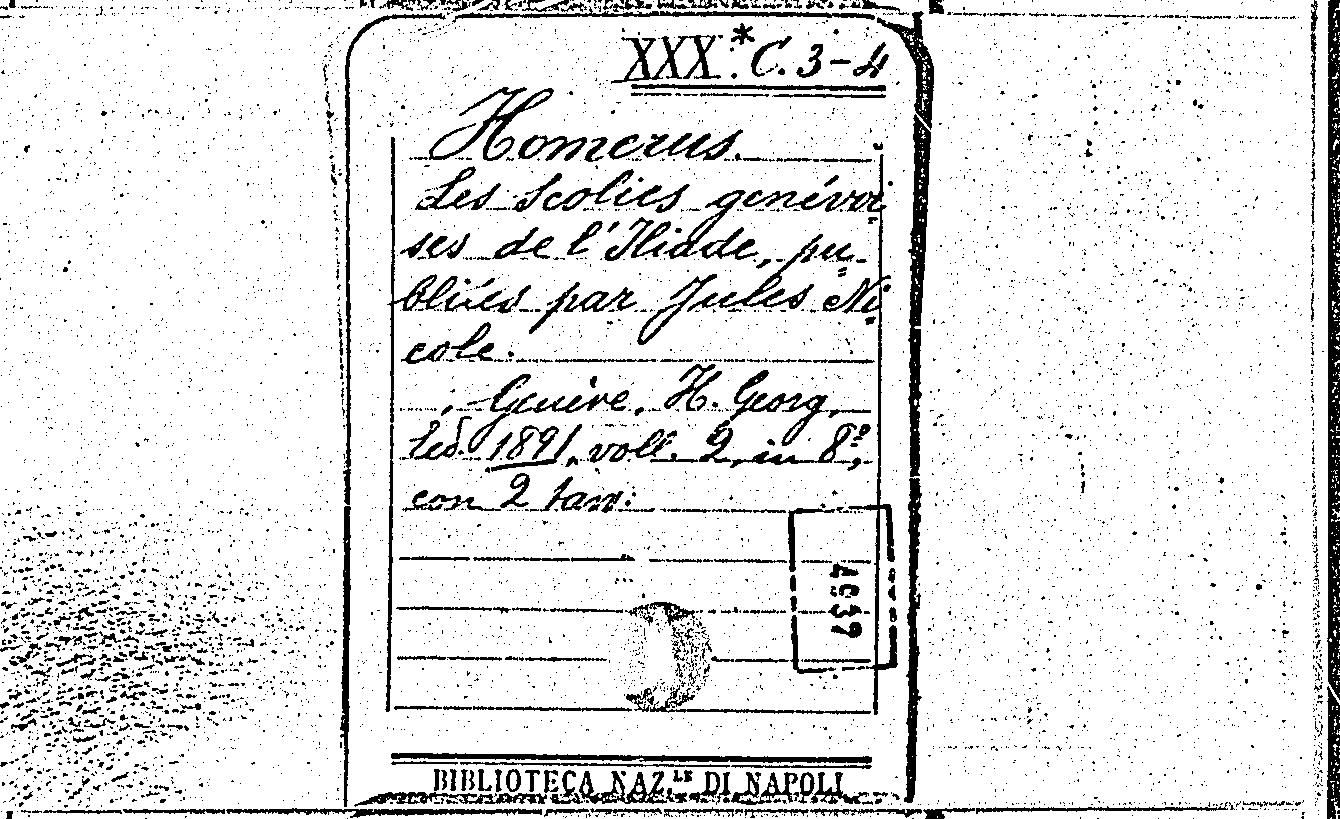 XXX.* C. 3-4
Homerus.
Les Scolies genévoi
ses de l'Iliade, pu-
bliées par Jules Ni
cole.
Genève, H. Georg,
ed. 1891, voll. 2, in 8º,
con 2 tav:
4937
BIBLIOTECA NAZ.LE DI NAPOLI